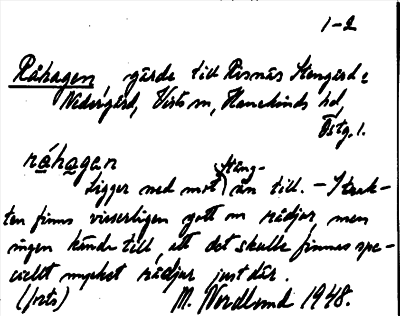 1-2
Råhagen gärde till Risnäs Stengård o
Nedergård, Vists sn, Hanekinds hd,
Östg. l.
råhagan
Stång-
Ligger ned mot ån till. – I trak-
ten finns visserligen gott om rådjur, men
ingen kände till, att det skulle finnas spe-
ciellt mycket rådjur just där.
(forts) M. Nordlund 1948.